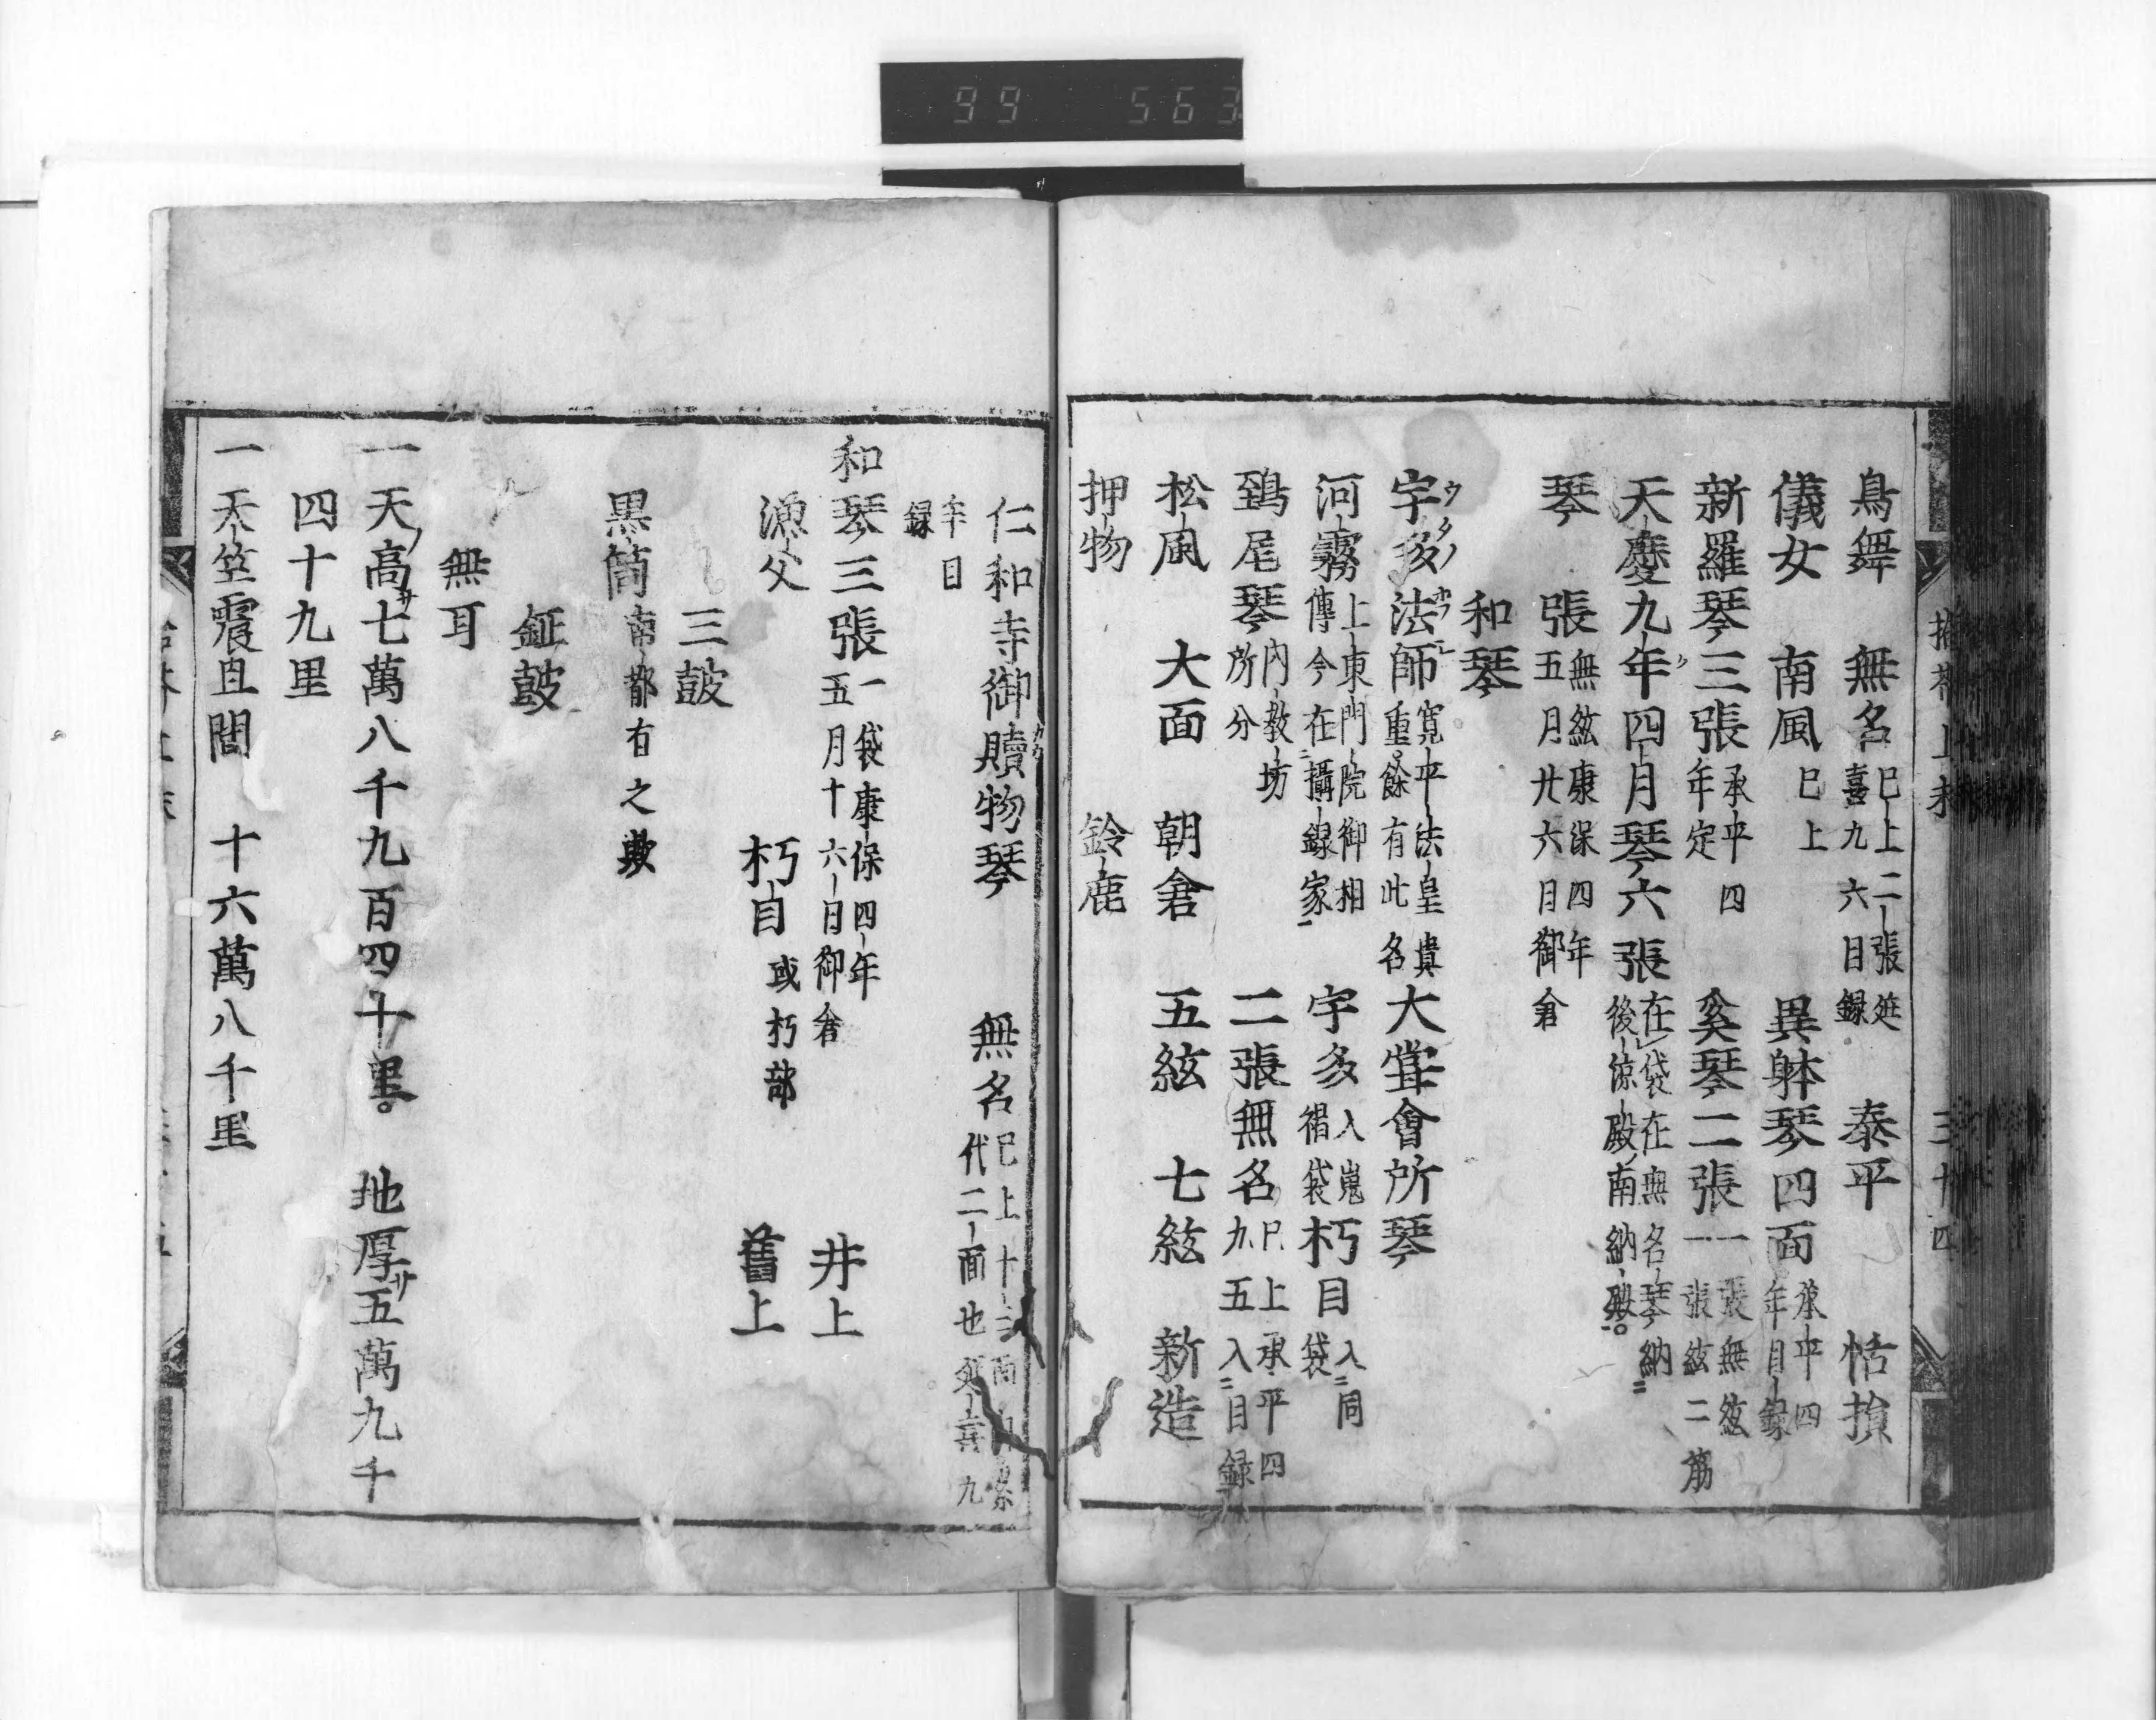 99 563
鳥舞 無名 已上二張延喜九六日録 泰平 恬損
儀女 南風 已上 異躰琴四面 承平四年目録
新羅琴三張 承平四年定 奚琴二張 一張無絃一張絃二筋
天慶九年四月琴六張 在袋在無名琴納後涼殿南納殿
琴 張 無絃康保四年五月廿六日御倉
和琴
宇多法師 寛平法皇貴重餘有此名 大甞會所琴
ウタノホフシ
河霧 上東門院御相傳今在攝録家 宇多 入嵬褐袋 朽目 入同袋
鵄尾琴 内教坊所分 二張無名 已上承平四九五入目録
松風 大面 朝倉 五絃 七絃 新造
押物 鈴鹿
三十四
仁和寺御贖物琴 無名 已上十三面 代二面也 延喜九
年目録
和琴三張 一袋康保四年五月十六日御倉 井上
漁父 朽目 或朽部 舊上
三皷
黒筒 南都有之歟
鉦皷
無耳
一天高サ七萬八千九百四十里 地厚サ五萬九千
四十九里
一天竺震旦間 十六萬八千里